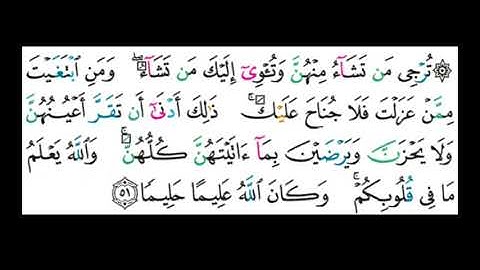 ۞ تُرْجِى مَن تَشَآءُ مِنْهُنَّ وَتُـْٔوِىٓ إِلَيْكَ مَن تَشَآءُ ۖ وَمَنِ ٱبْتَغَيْتَ
مِمَّنْ عَزَلْتَ فَلَا جُنَاحَ عَلَيْكَ ۚ ذَٰلِكَ أَدْنَىٰٓ أَن تَقَرَّ أَعْيُنُهُنَّ
وَلَا يَحْزَنَّ وَيَرْضَيْنَ بِمَآ ءَاتَيْتَهُنَّ كُلُّهُنَّ ۚ وَٱللَّهُ يَعْلَمُ
مَا فِى قُلُوبِكُمْ ۚ وَكَانَ ٱللَّهُ عَلِيمًا حَلِيمًا ٥١